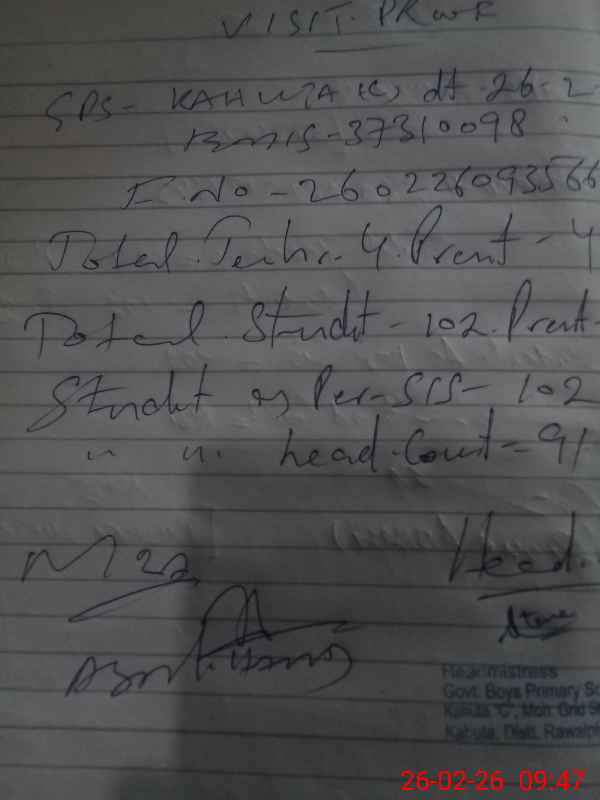 VISIT. PROOF
GPS- KAHUTA (C) dt 26-2
EMIS-37310098
F.No - 260226093566
Total. Teachr. 4. Prent - 4
Total. Studt - 102. Prent-
Studt as Per-SIS- 102
" " head.Count - 91
Head.
Headmistress
Govt. Boys Primary Sc
Kahuta "C", Moh: Grid St
Kahuta, Distt. Rawalpi
26-02-26 09:47